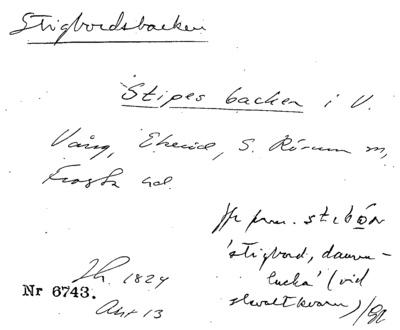 Stigbordsbacken
Stipes backen i V.
Vång, Ekeröd, S. Rörum m,
Frosta hd.
Jfr prov. stibōr
'stigbord, damm-
lucka' (vid
skvaltkvarn)
Nr 6743.
1824
Akt 13